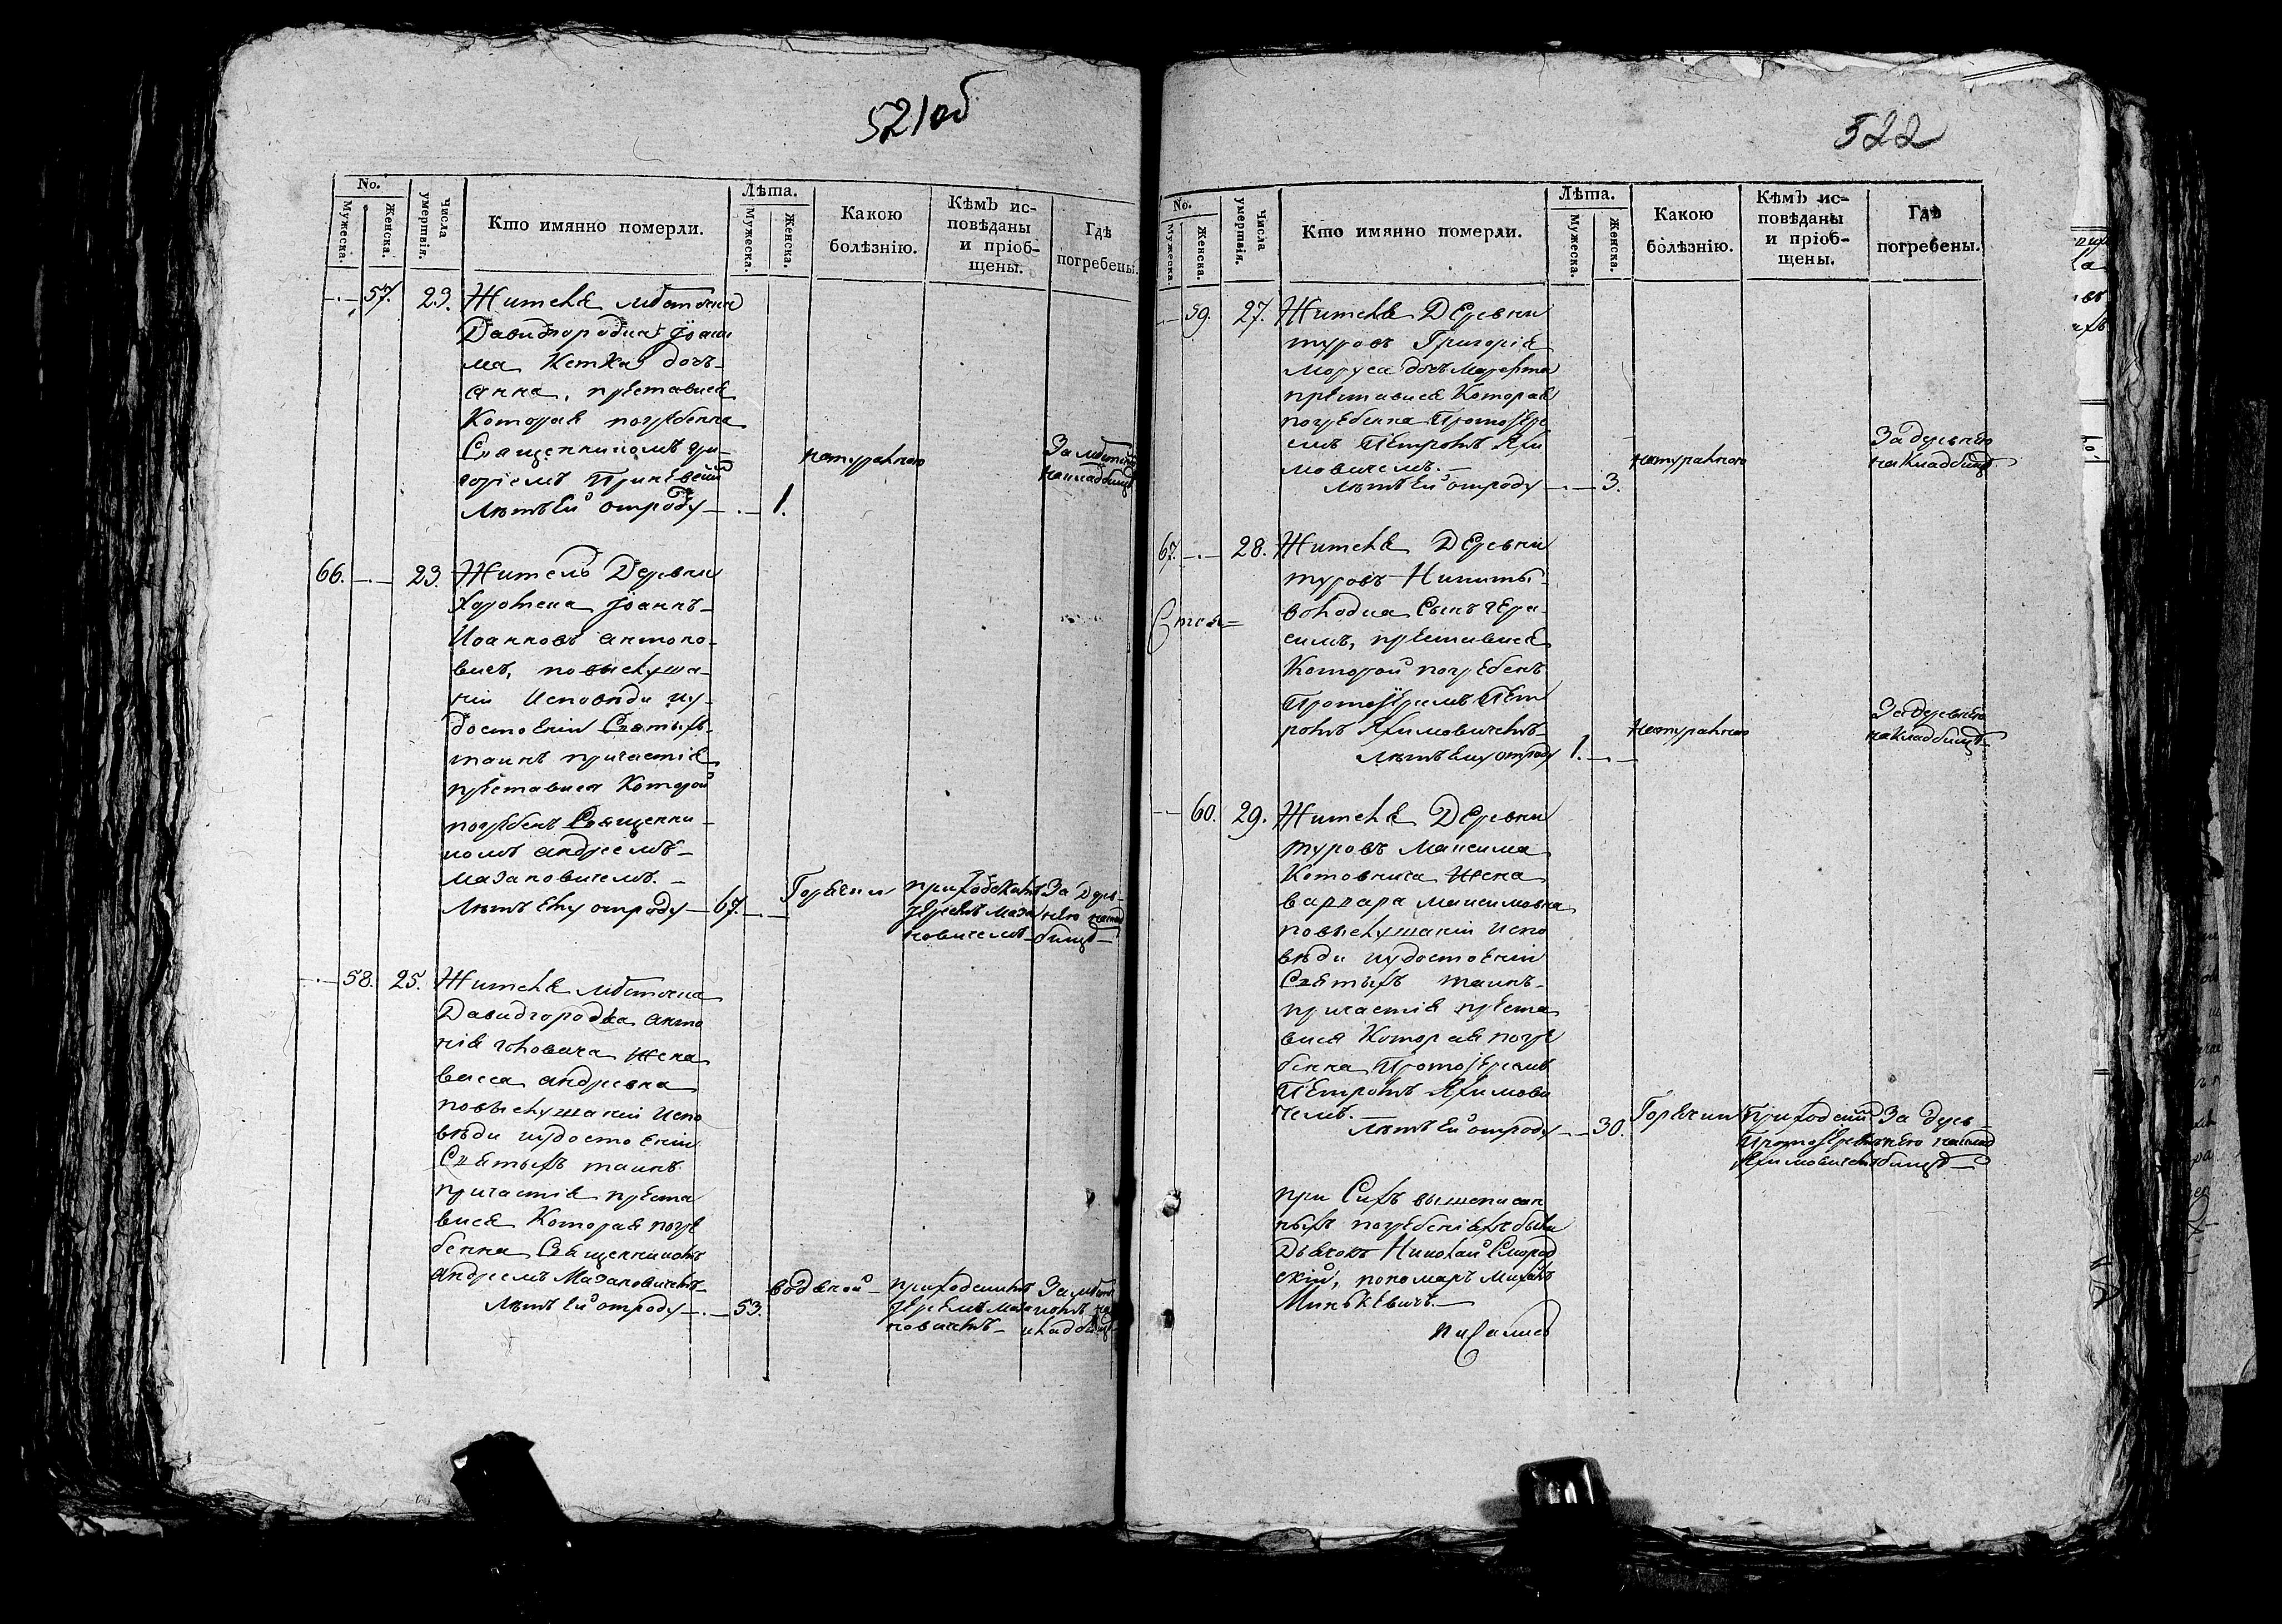 521об
No.
Мужеска.
Женска.
Числа умертвія.
Кто имянно померли.
Лѣта.
Мужеска.
Женска.
Какою болѣзнію.
Кѣмъ исповѣданы и пріобщены.
Гдѣ погребены.
57. 23. Жителя мѣстечка
Давидгородка Іоан
на дочь
анна, преставися
Которая погребенна
Священникомъ гри-
горіемъ
Лѣтъ Ей отроду 1. натуралною За мѣстечк на кладбищѣ
66. 23. Житель Деревни
Хоромска Іоаннъ
Иоанновъ антоно-
вичъ, повыслуша-
ніи Исповѣди иу-
достоеніи Святыхъ
таинъ причастія
преставися Которой
погребенъ Священни-
комъ андреемъ
Мазановичемъ.
Лѣтъ Ему отроду 67.
Горячки
приходскимъ
Іереемъ Маза
новичемъ
За дере-
внею на клад
бищѣ
58. 25. Жителя мѣстечка
Давидгородка анто
нія жена
васса андреевна
повыслушаніи испо
вѣди иудостоеніи
Святыхъ таинъ
причастія преста
вися Которая погре
бенна Священникомъ
андреемъ Мазановичемъ
Лѣтъ Ей отроду 53.
водяной
приходскимъ
Іереемъ Маза
новичемъ
За мѣст
комъ на
кладбищѣ
522
No.
Мужеска.
Женска.
Числа умертвія.
Кто имянно померли.
Лѣта.
Мужеска.
Женска.
Какою болѣзнію.
Кѣмъ исповѣданы и пріобщены.
Гдѣ погребены.
59. 27. Жителя Деревни
туровъ Григорія
Моруса дочь Марфа
преставися Которая
погребенна Протоіере
емъ Петромъ Яхи
мовичемъ.
Лѣтъ Ей отроду 3.
натуралною
За деревнею
на кладбищѣ
67. 28. Жителя Деревни
туровъ Никиты
володка Сынъ гера
симъ, преставися
Которой погребенъ
Протоіереемъ Пет
ромъ Яхимовичемъ
Лѣтъ Ему отроду 1.
натуралною
За деревнею
на кладбищѣ
60. 29. Жителя Деревни
туровъ Максима
Котовича жена
варвара Максимовна
повыслушаніи испо
вѣди иудостоеніи
Святыхъ таинъ
причастія преста
вися Которая погре
бенна Протоіереемъ
Петромъ Яхимови
чемъ.
Лѣтъ Ей отроду 30.
Горячки
Приходский
Протоіереемъ
Яхимовичемъ
За дере-
внею на клад
бищѣ
при Сихъ вышеписан
ныхъ погребеніяхъ были
Дьячокъ Николай
пономарь Михаилъ
Минькевичъ.
писались